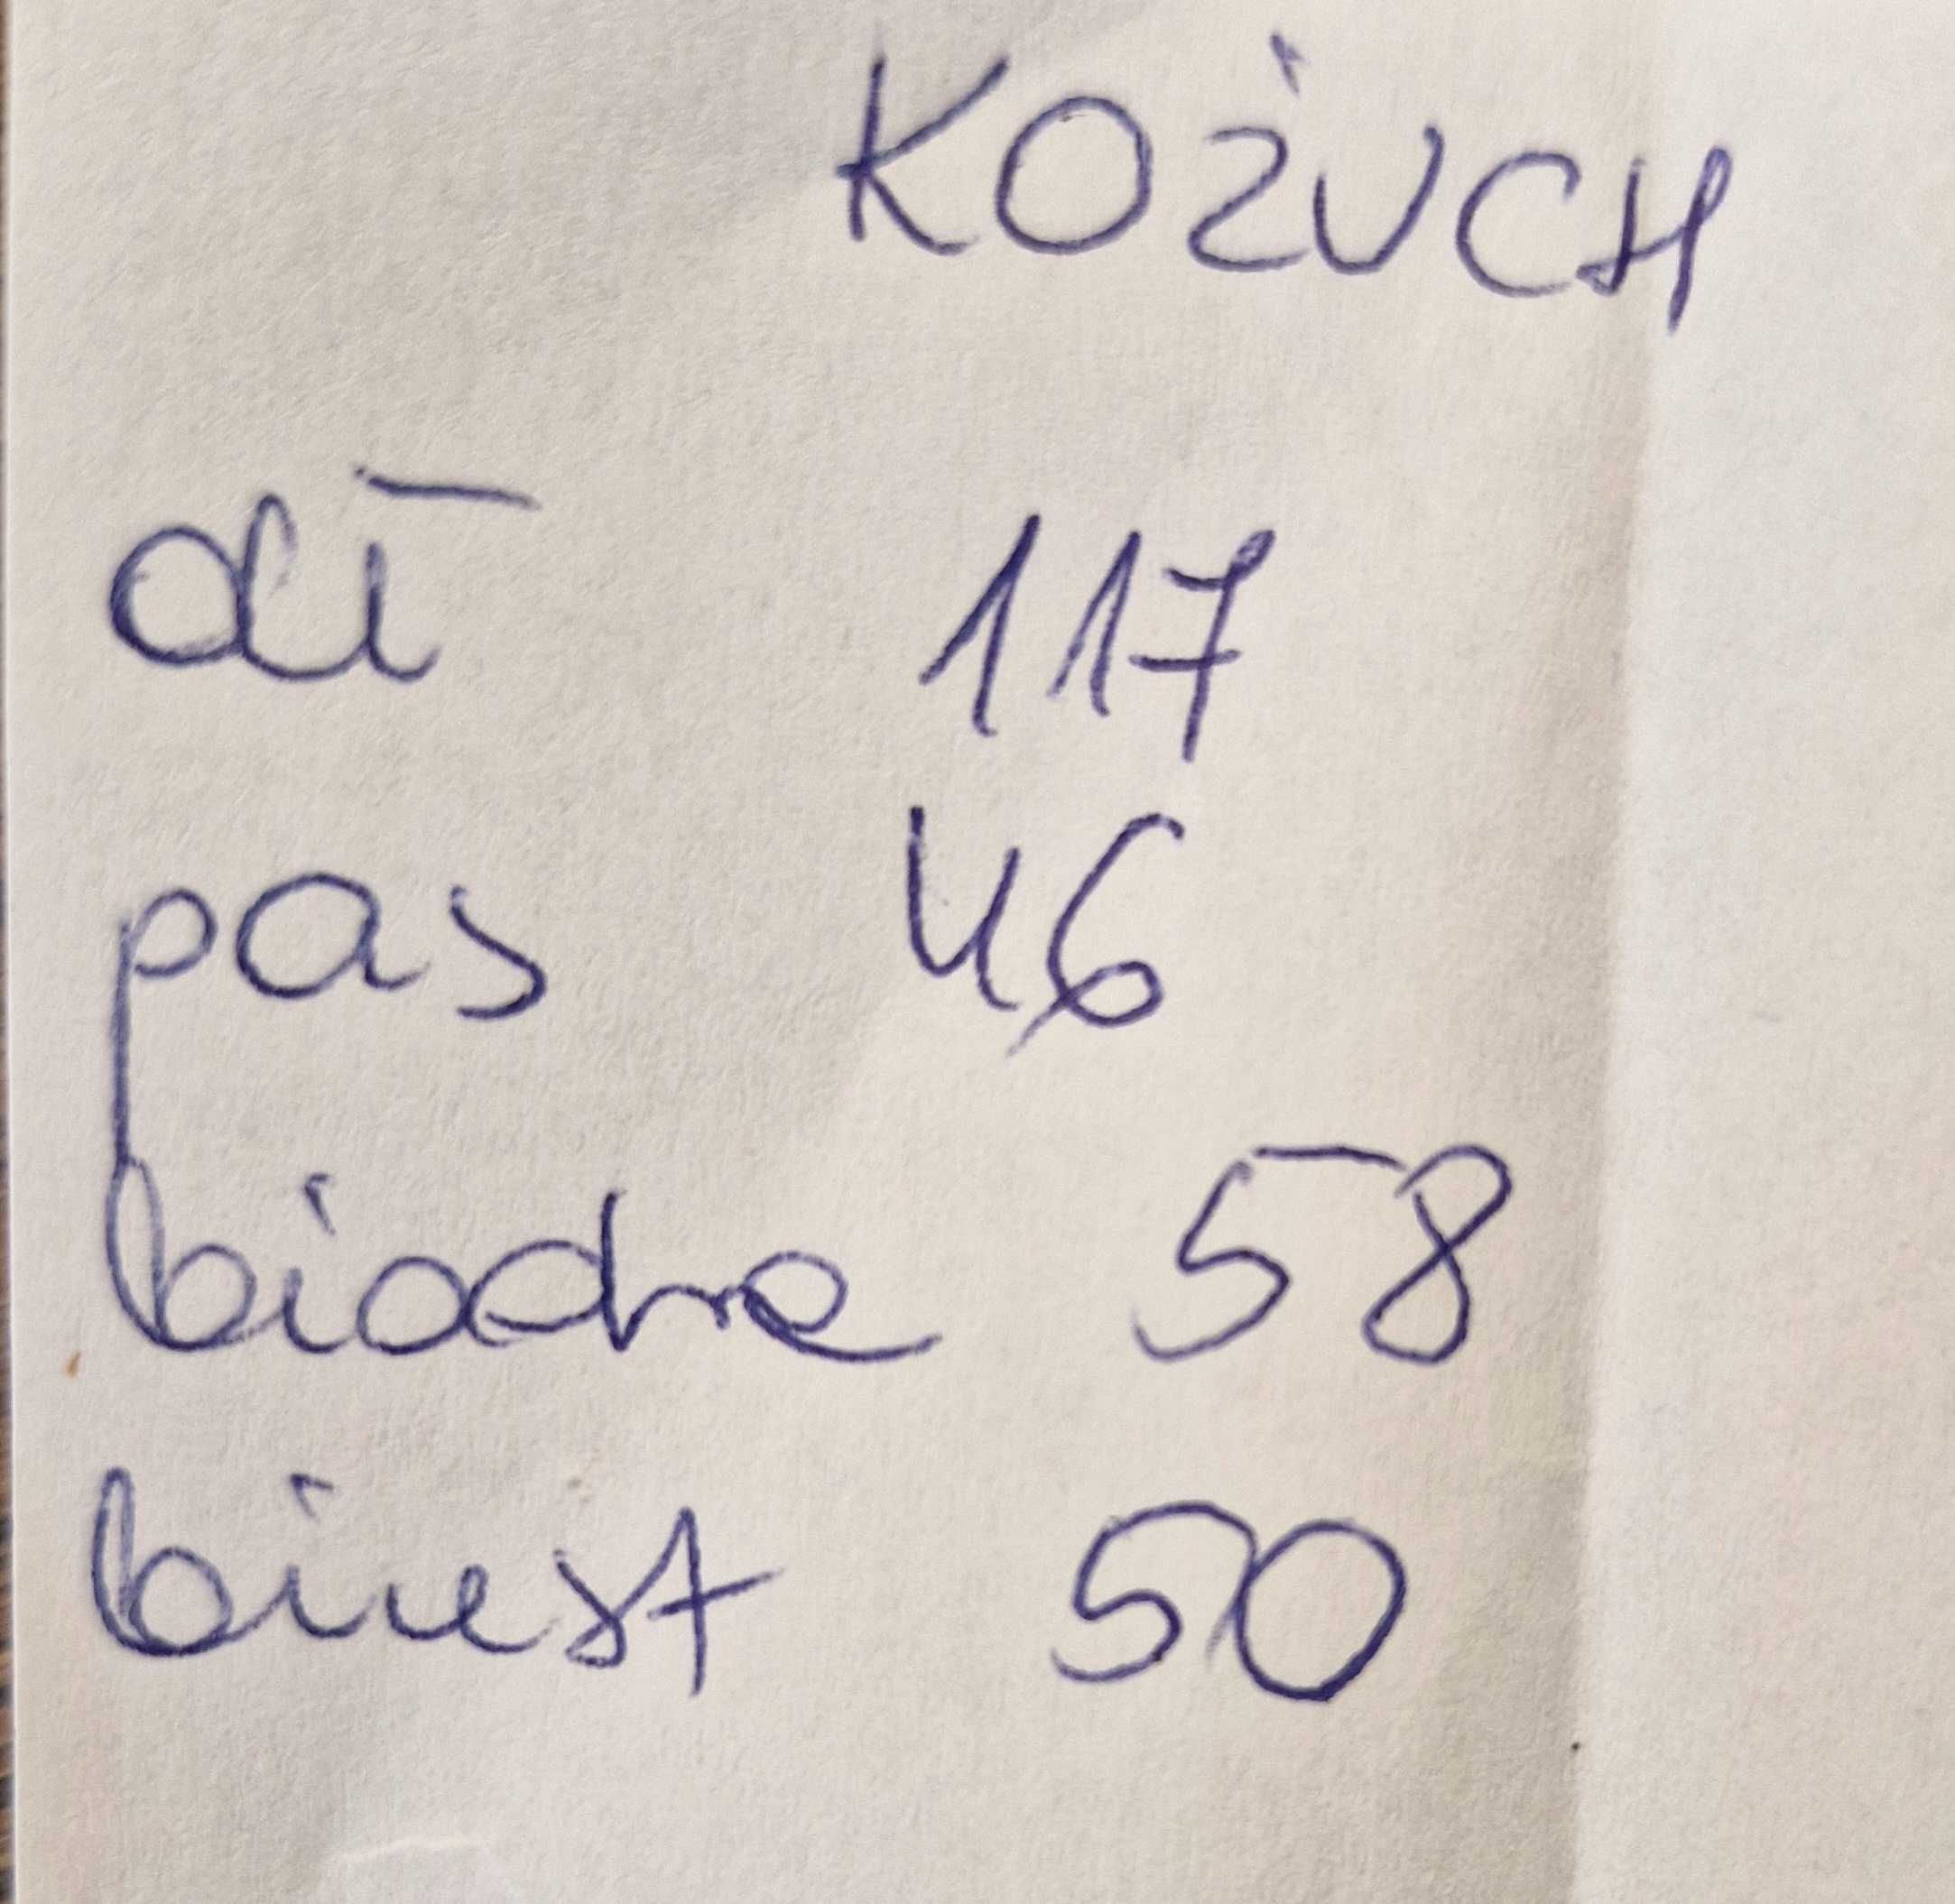 KOŻUCH
dł 117
pas 46
biodra 58
biust 50